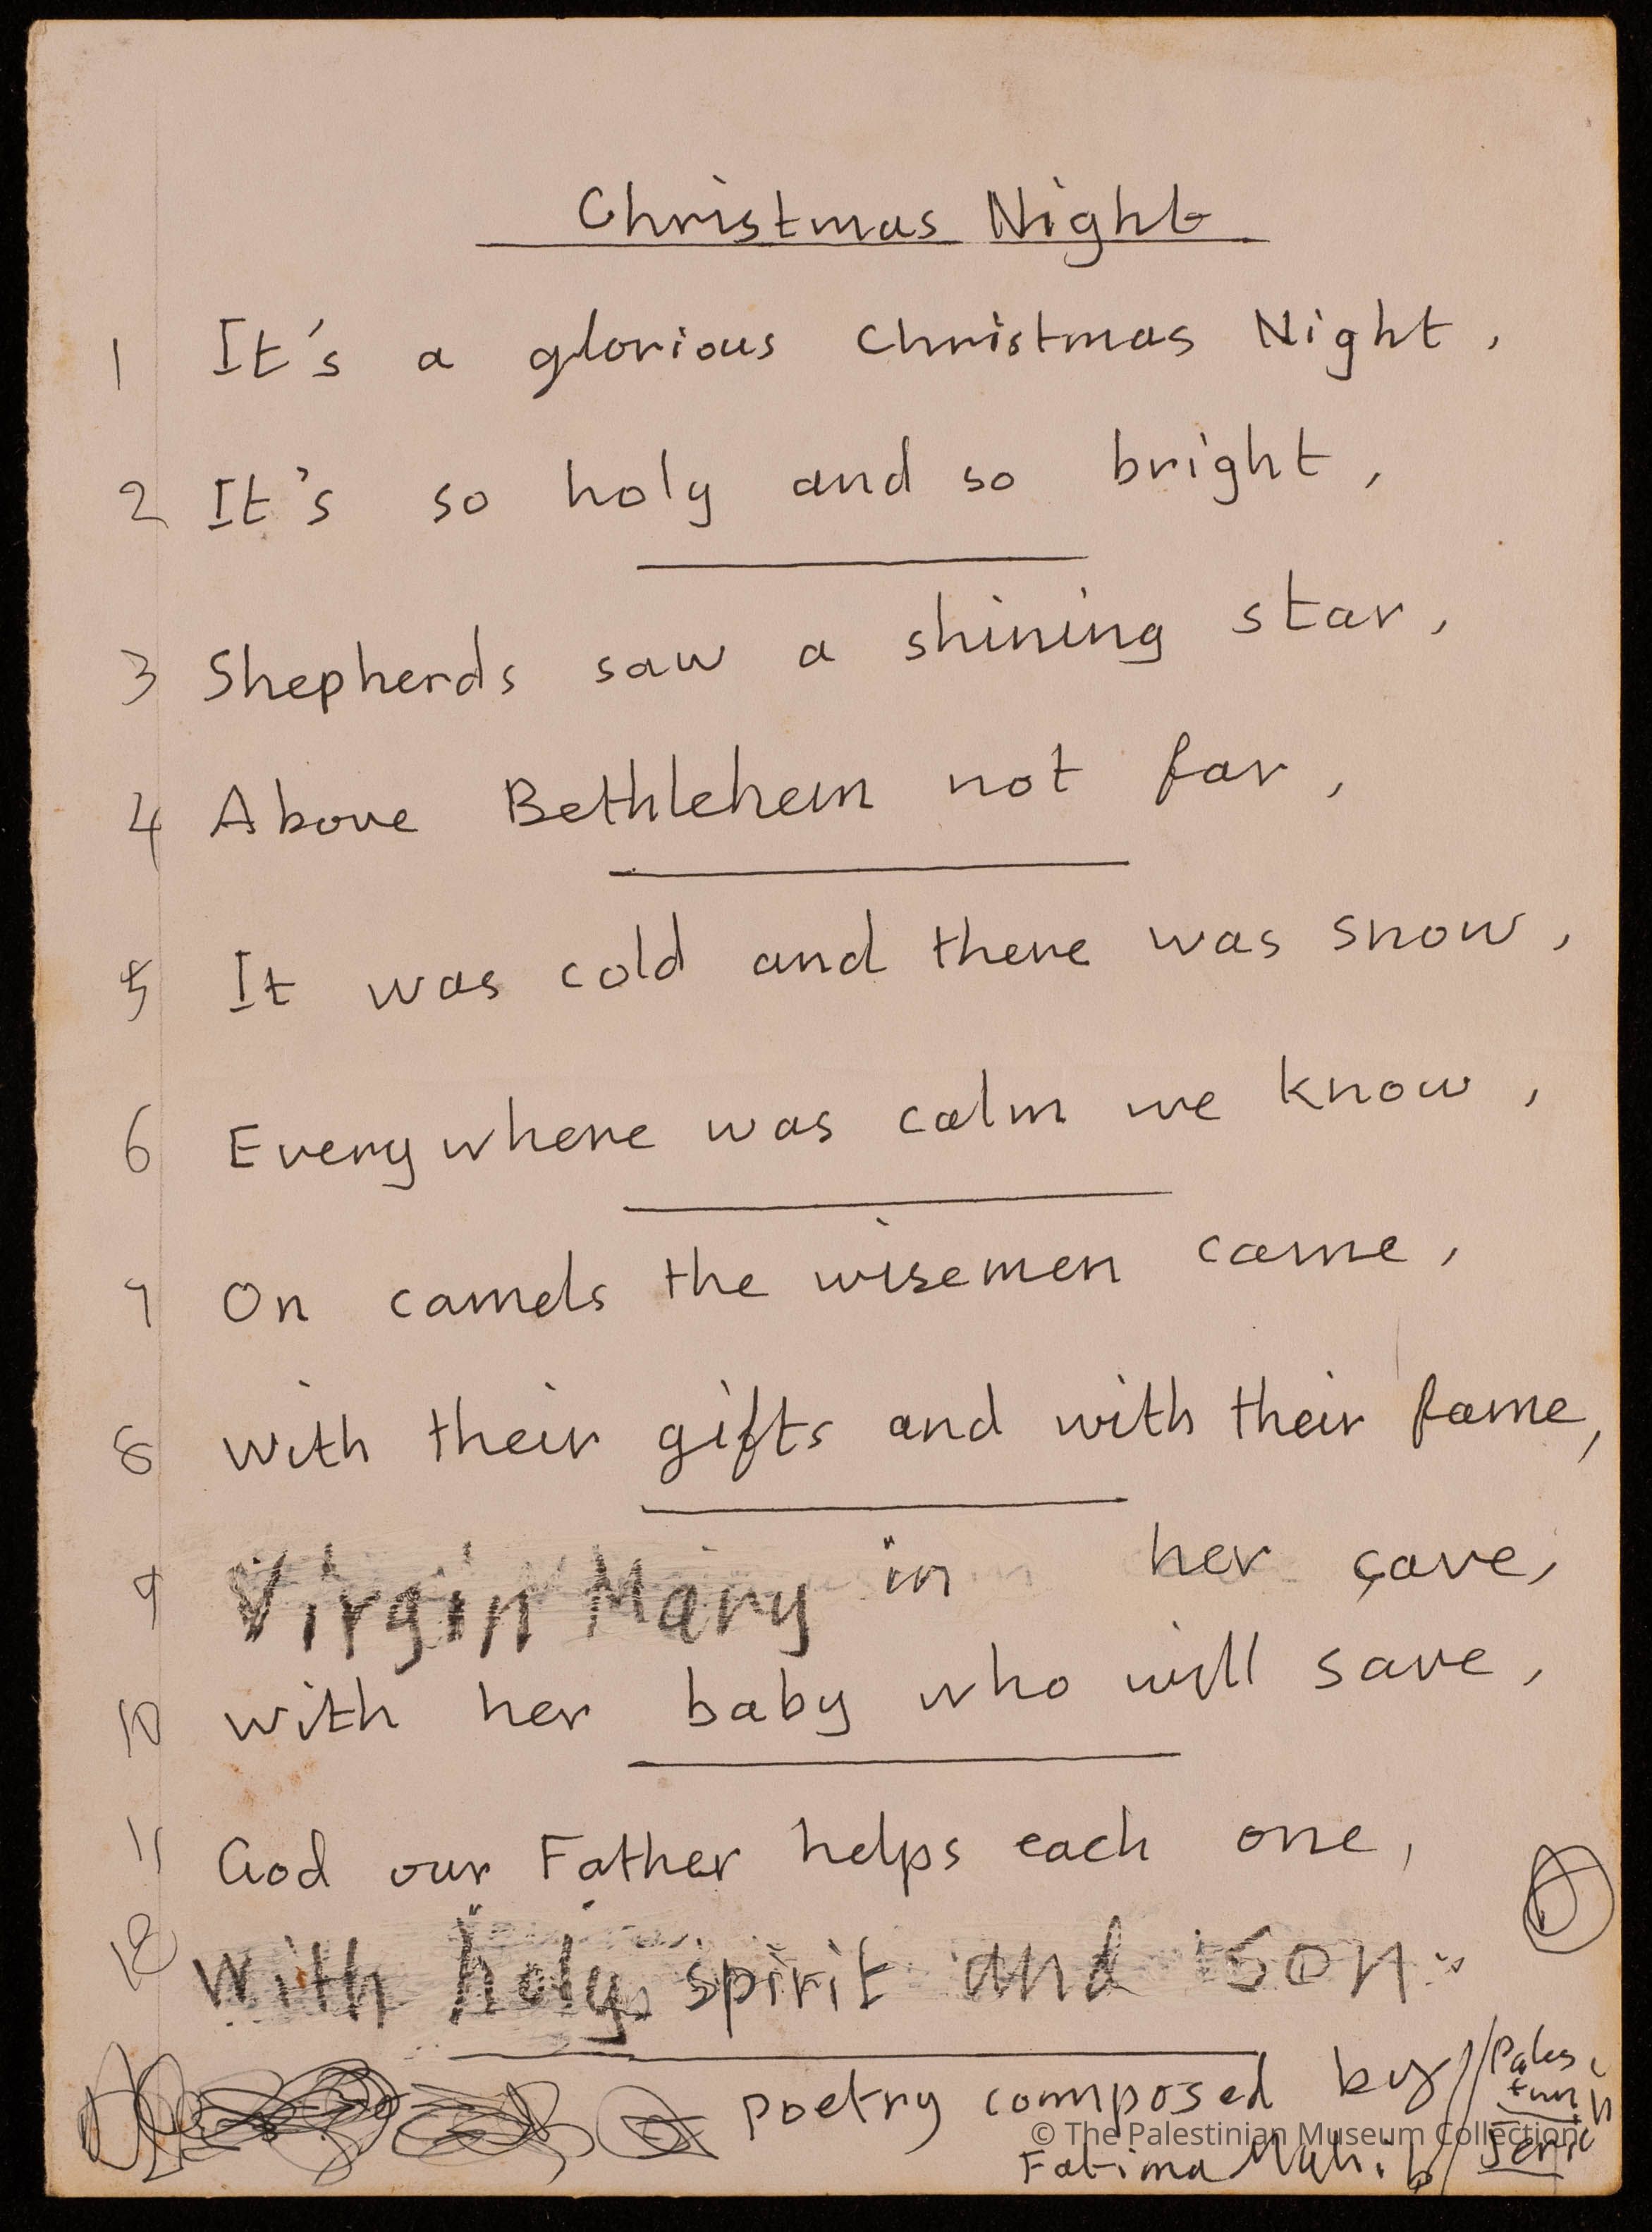 Christmas Night
1 It's a glorious Christmas Night,
2 It's so holy and so bright,
3 Shepherds saw a shining star,
4 Above Bethlehem not far,
5 It was cold and there was snow,
6 Everywhere was calm we know,
7 On camels the wisemen came,
8 with their gifts and with their fame,
9 Virgin Mary in her cave,
10 with her baby who will save,
11 God our Father helps each one,
12 with holy spirit and son.
poetry composed by
Fatima Muhib
© The Palestinian Museum Collection